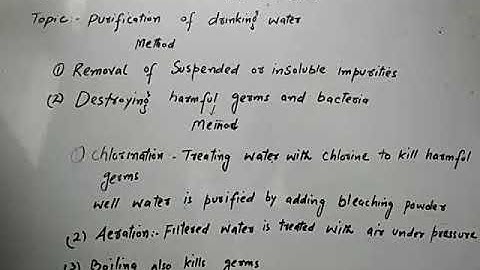 Topic:- Purification of drinking water
Method
① Removal of Suspended or insoluble impurities
(2) Destroying harmful germs and bacteria
Method
1) Chlorination - Treating water with chlorine to kill harmful
germs
well water is purified by adding bleaching powder
(2) Aeration:- Filtered water is treated with air under pressure
(3) Boiling also kills germs